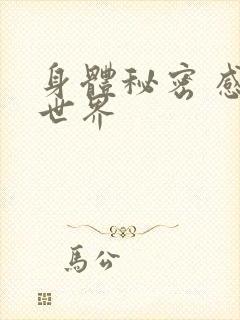 身體秘密 感
世界
馬公